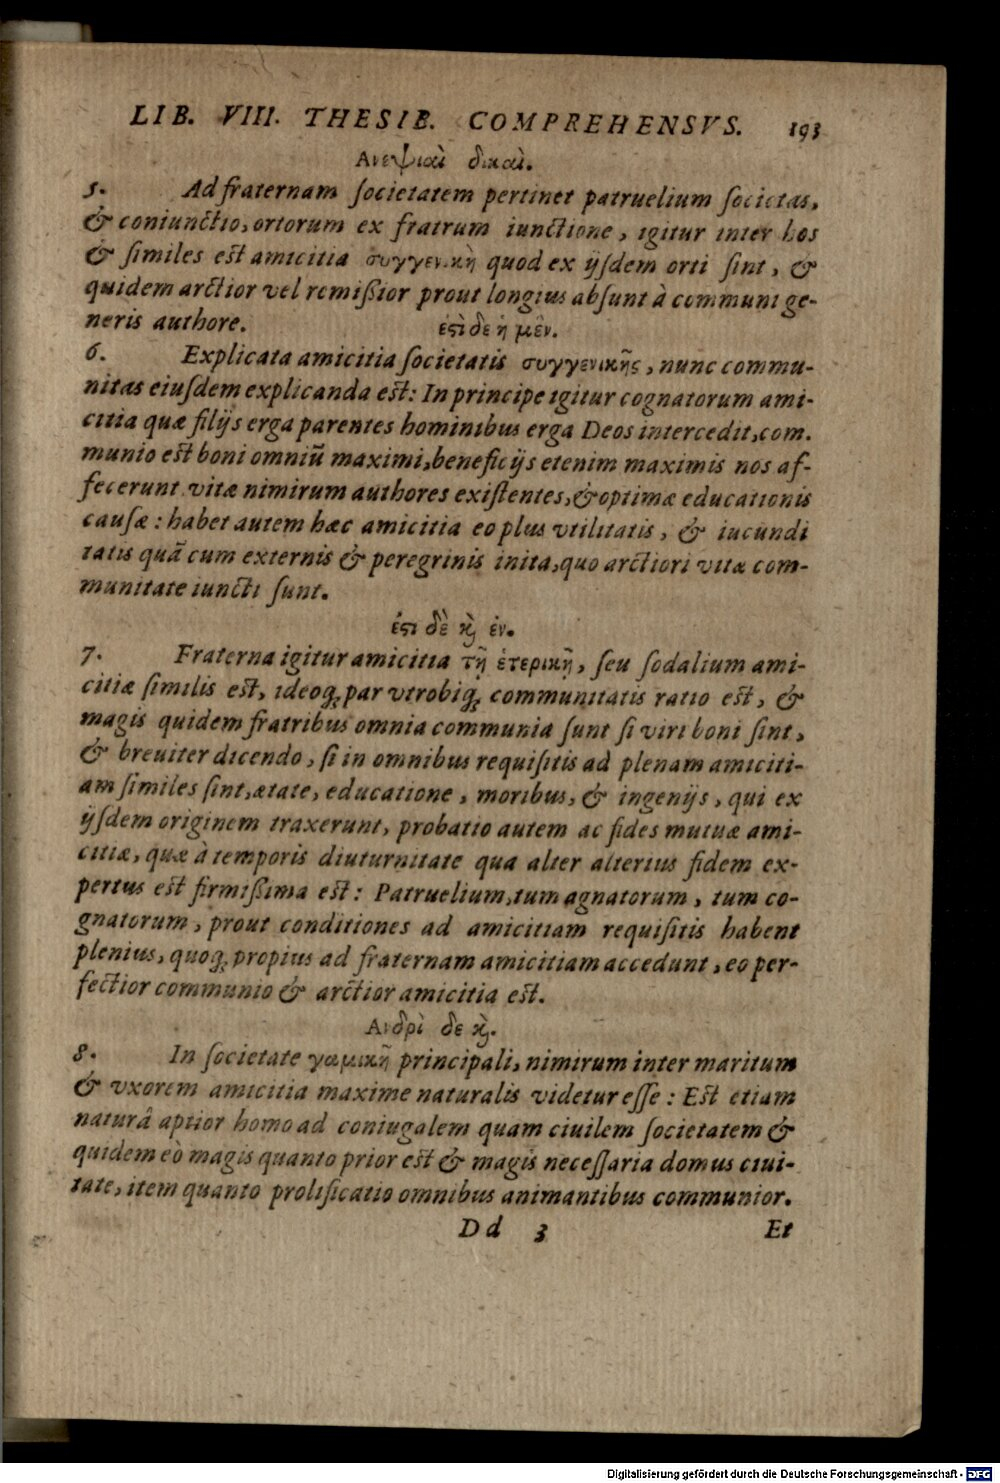 LIB. VIII. THESIB. COMPREHENSVS. 193
Ανεψιαὶ δικαὶ.
5. Ad fraternam ſocietatem pertinet patruelium ſocietas,
& coniunctio, ortorum ex fratrum iunctione, igitur inter hos
& ſimiles est amicitia συγγενικὴ quod ex ijſdem orti ſint, &
quidem arctior vel remißior prout longius abſunt à communi ge-
neris authore.
ἐϛὶ δε ἡ μὲν.
6. Explicata amicitia ſocietatis συγγενικῆς, nunc commu-
nitas eiuſdem explicanda est: In principe igitur cognatorum ami-
citia quæ filijs erga parentes hominibus erga Deos intercedit, com.
munio est boni omniũ maximi, beneficijs etenim maximis nos af-
fecerunt vitæ nimirum authores exiſtentes, & optimæ educationis
cauſæ: habet autem hæc amicitia eo plus vtilitatis, & iucundi
tatis quã cum externis & peregrinis inita, quo arctiori vitæ com-
munitate iuncti ſunt.
ἐϛι δὲ ϗ̀ ἐν.
7. Fraterna igitur amicitia τῇ ἑτερικῇ, ſeu ſodalium ami-
citiæ ſimilis est, ideoq́; par vtrobiq́; communitatis ratio est, &
magis quidem fratribus omnia communia ſunt ſi viri boni ſint,
& breuiter dicendo, ſi in omnibus requiſitis ad plenam amiciti-
am ſimiles ſint, ætate, educatione, moribus, & ingenijs, qui ex
ijſdem originem traxerunt, probatio autem ac fides mutuæ ami-
citiæ, quæ à temporis diuturnitate qua alter alterius fidem ex-
pertus est firmißima est: Patruelium, tum agnatorum, tum co-
gnatorum, prout conditiones ad amicitiam requiſitis habent
plenius, quoq́; propius ad fraternam amicitiam accedunt, eo per-
fectior communio & arctior amicitia est.
Ανδρὶ δε ϗ̀.
8. In ſocietate γαμικῇ principali, nimirum inter maritum
& vxorem amicitia maxime naturalis videtur eſſe: Est etiam
naturâ aptior homo ad coniugalem quam ciuilem ſocietatem &
quidem eò magis quanto prior est & magis neceſſaria domus ciui-
tate, item quanto prolificatio omnibus animantibus communior.
Dd 3 Et
Digitalisierung gefördert durch die Deutsche Forschungsgemeinschaft - DFG